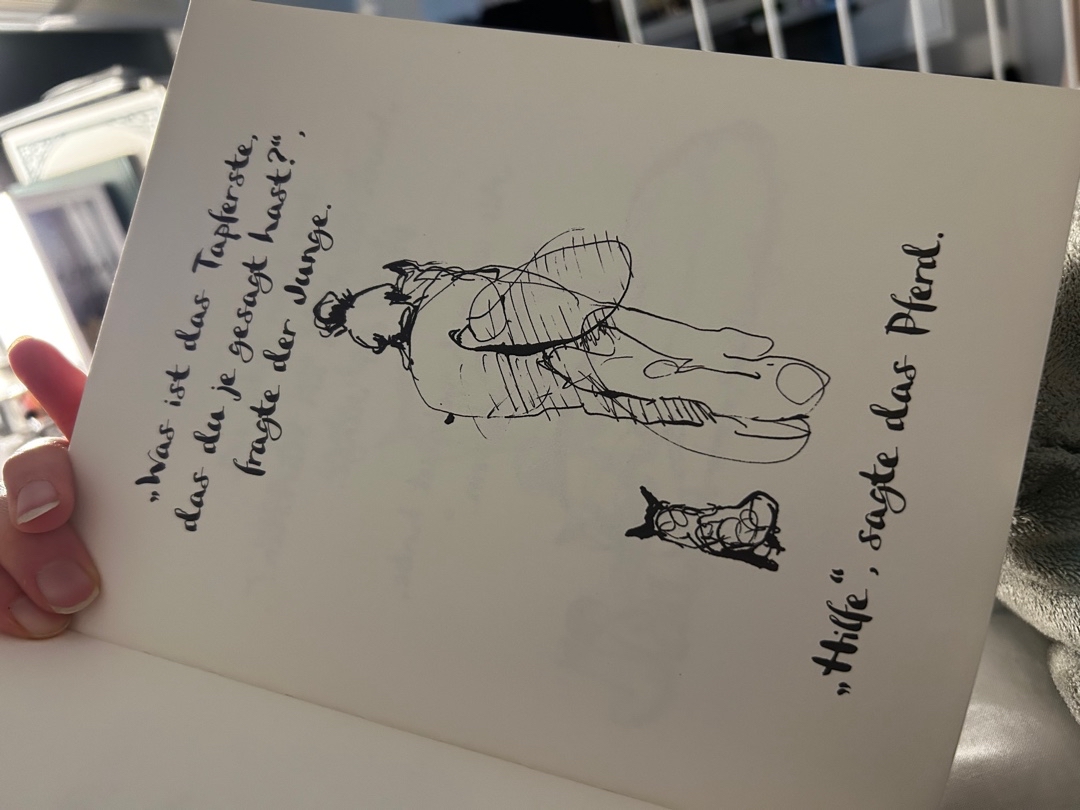 „Was ist das Tapferste,
das du je gesagt hast?“,
fragte der Junge.
„Hilfe“, sagte das Pferd.